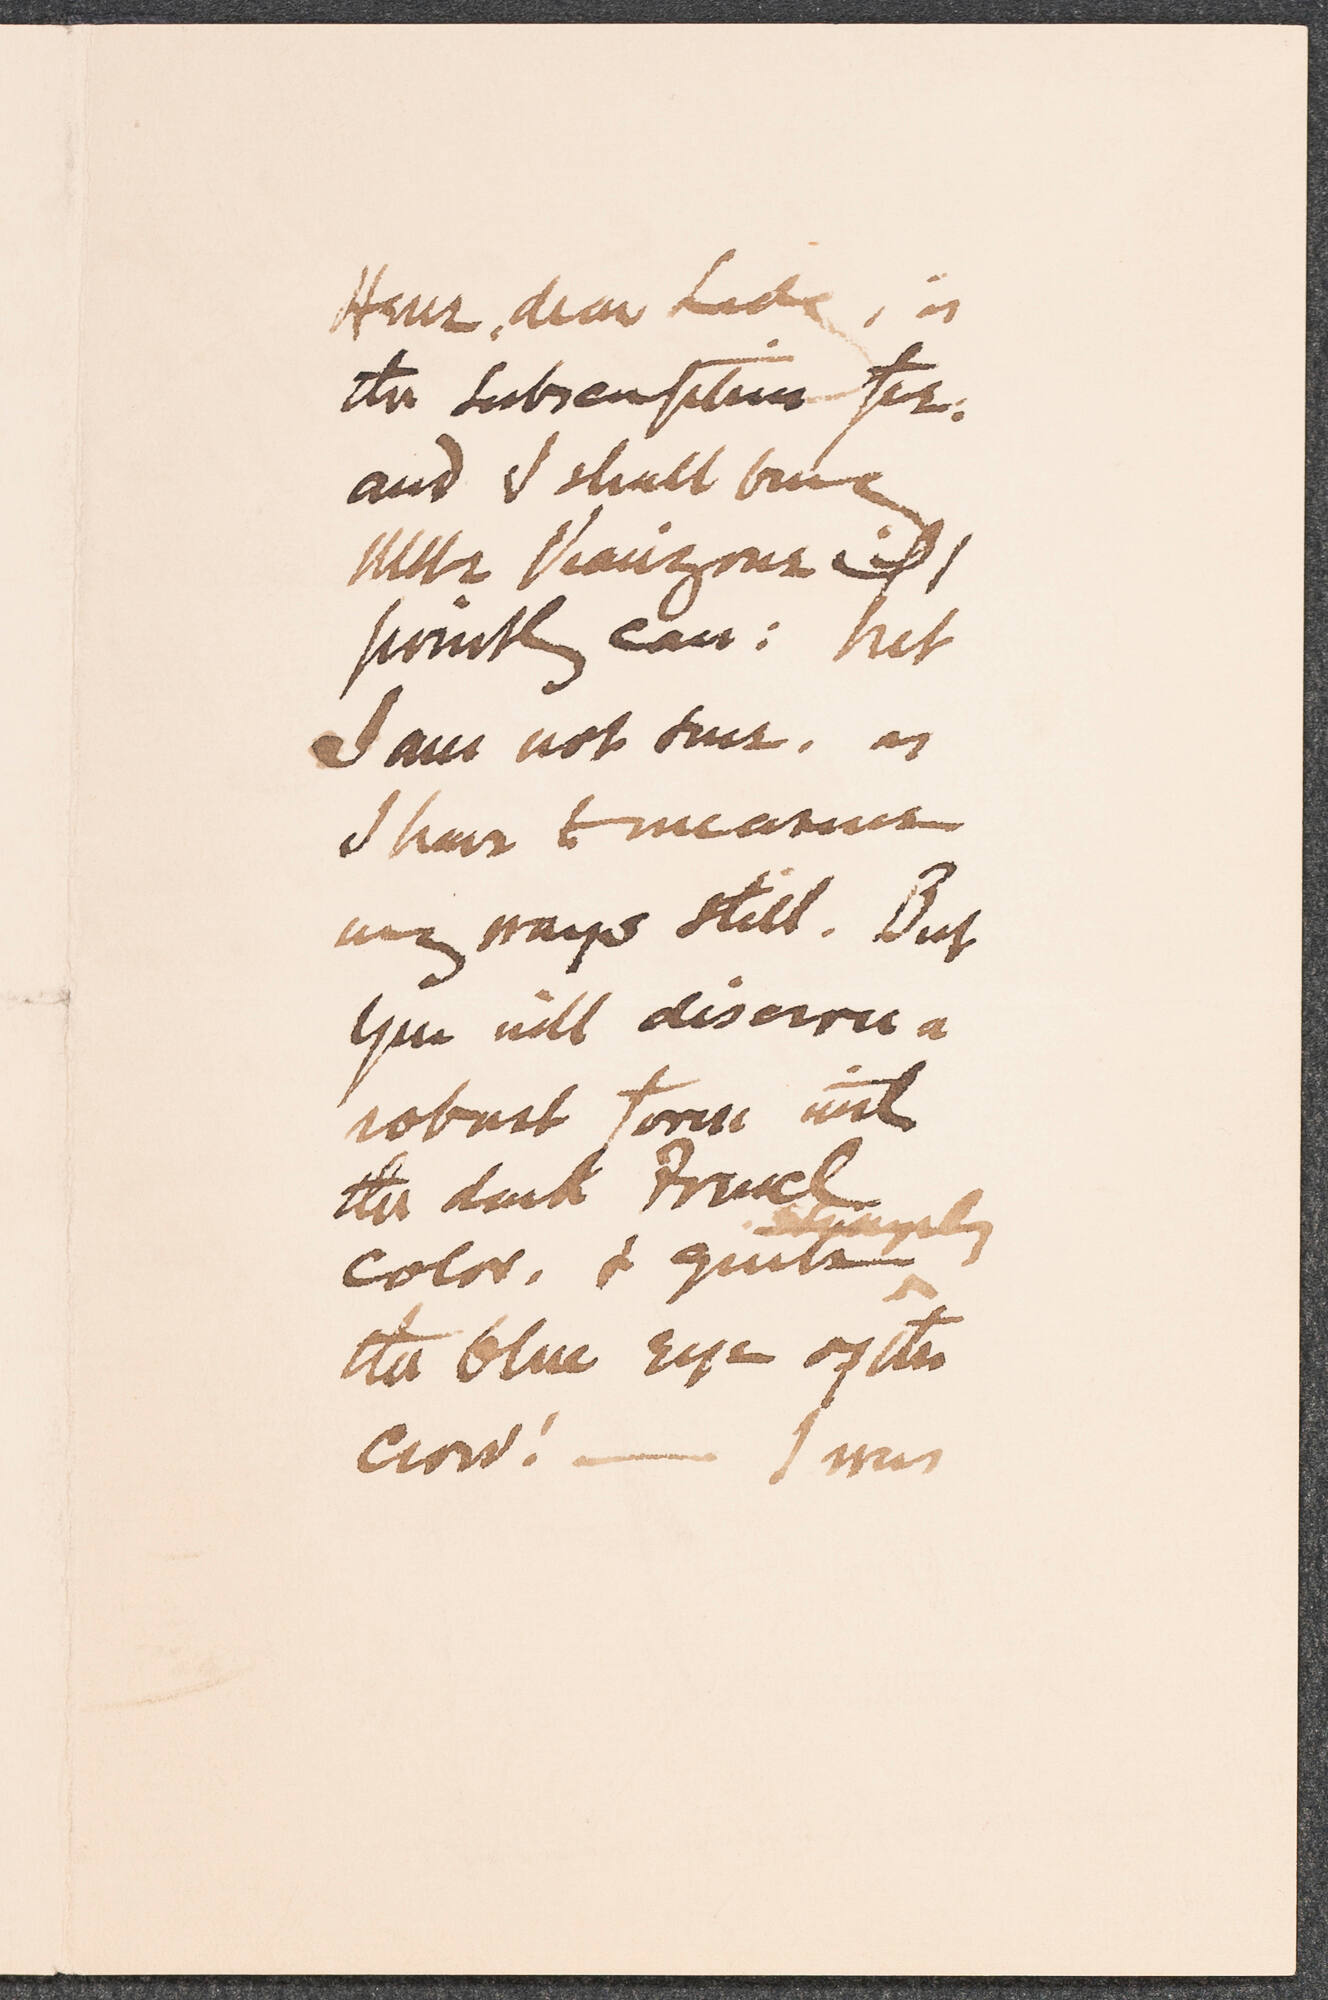 Here, dear Lady, is
the subscription fee:
and I shall bring
Mlle if I
possibly can: but
I am not sure, as
I have to measure
my ways still. But
you will discern a
robust form with
the dark French
color, & quite strangely
the blue eye of the
crow! — I was